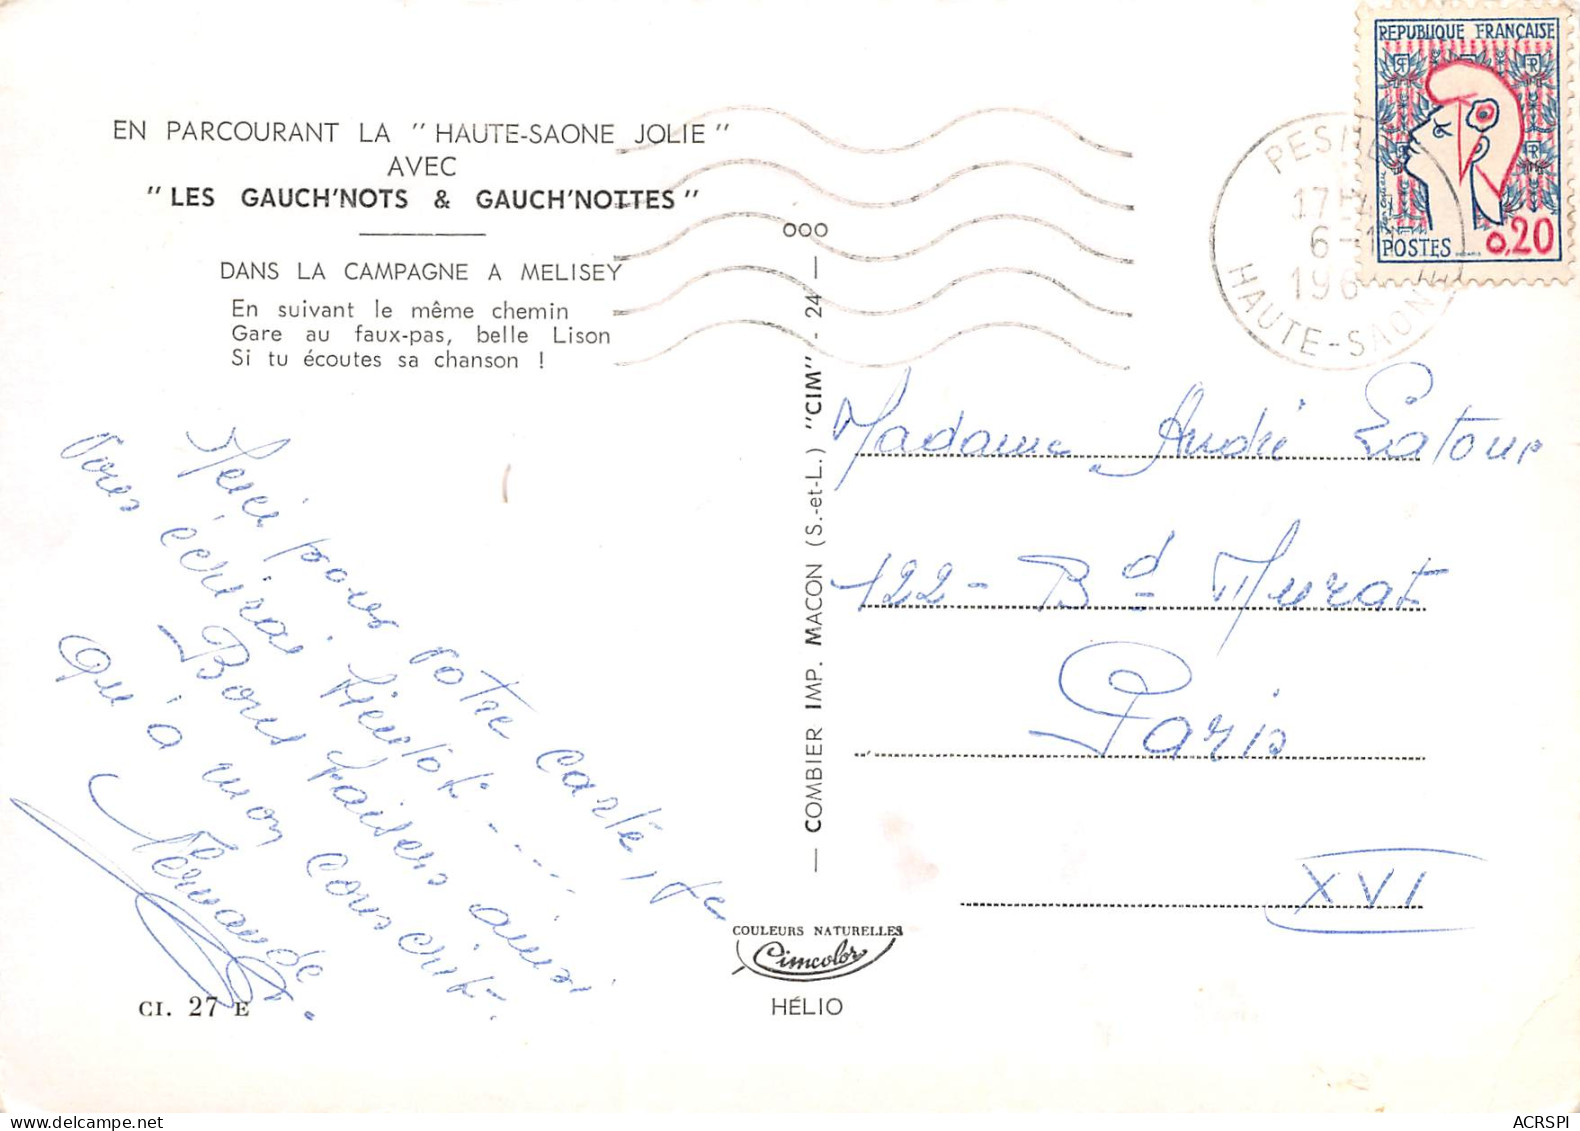 REPUBLIQUE FRANÇAISE
POSTES 0,20
17 H
6 - 1
196
HAUTE-SAONE
EN PARCOURANT LA " HAUTE-SAONE JOLIE "
AVEC
" LES GAUCH'NOTS & GAUCH'NOTTES "
DANS LA CAMPAGNE A MELISEY
En suivant le même chemin
Gare au faux-pas, belle Lison
Si tu écoutes sa chanson !
Merci pour votre carte, je
vous écrirai bientôt - ....
Bons baisers ainsi
qu'à mon conscrit.
Fernande
CI. 27 E
ooo
— COMBIER IMP. MACON (S.-et-L.) "CIM" - 24 —
COULEURS NATURELLES
Cimcolor
HÉLIO
Madame André Latour
122 - Bd Murat
Paris
XVI
ACRSPI